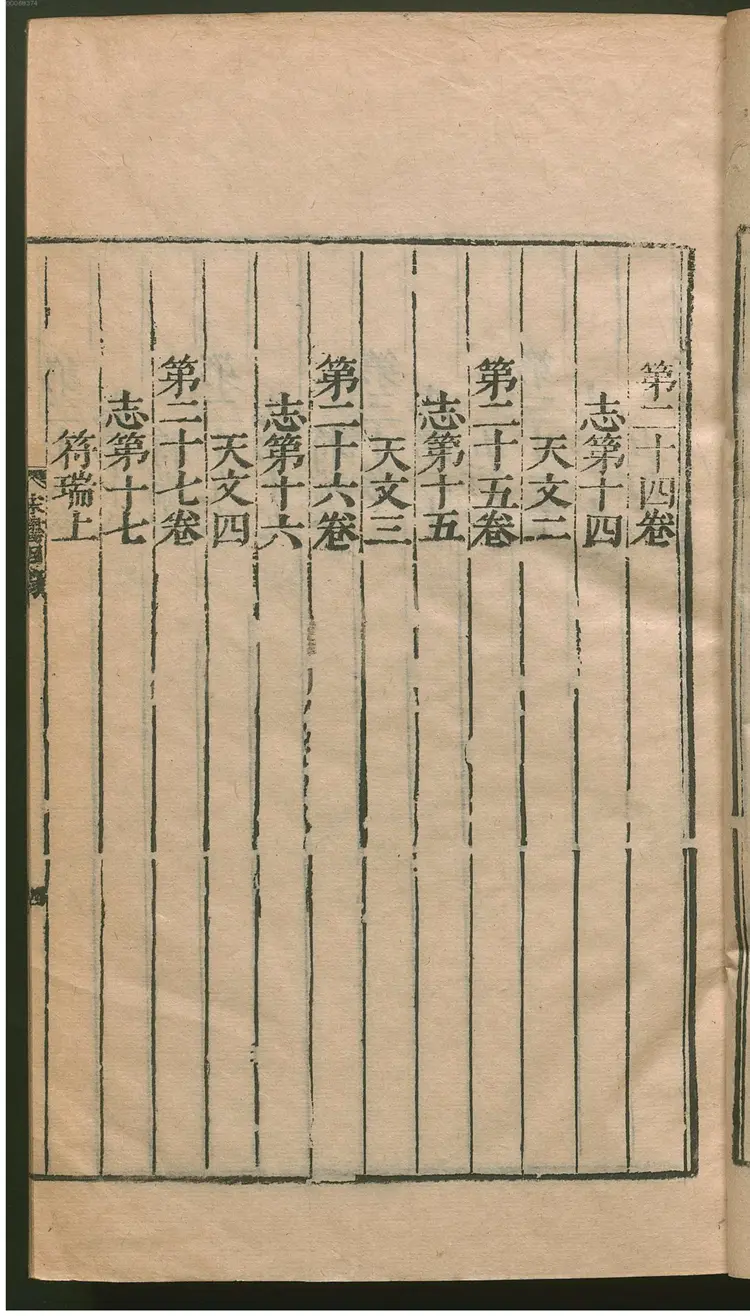 第二十四卷
志第十四
天文二
第二十五卷
志第十五
天文三
第二十六卷
志第十六
天文四
第二十七卷
志第十七
符瑞上
四